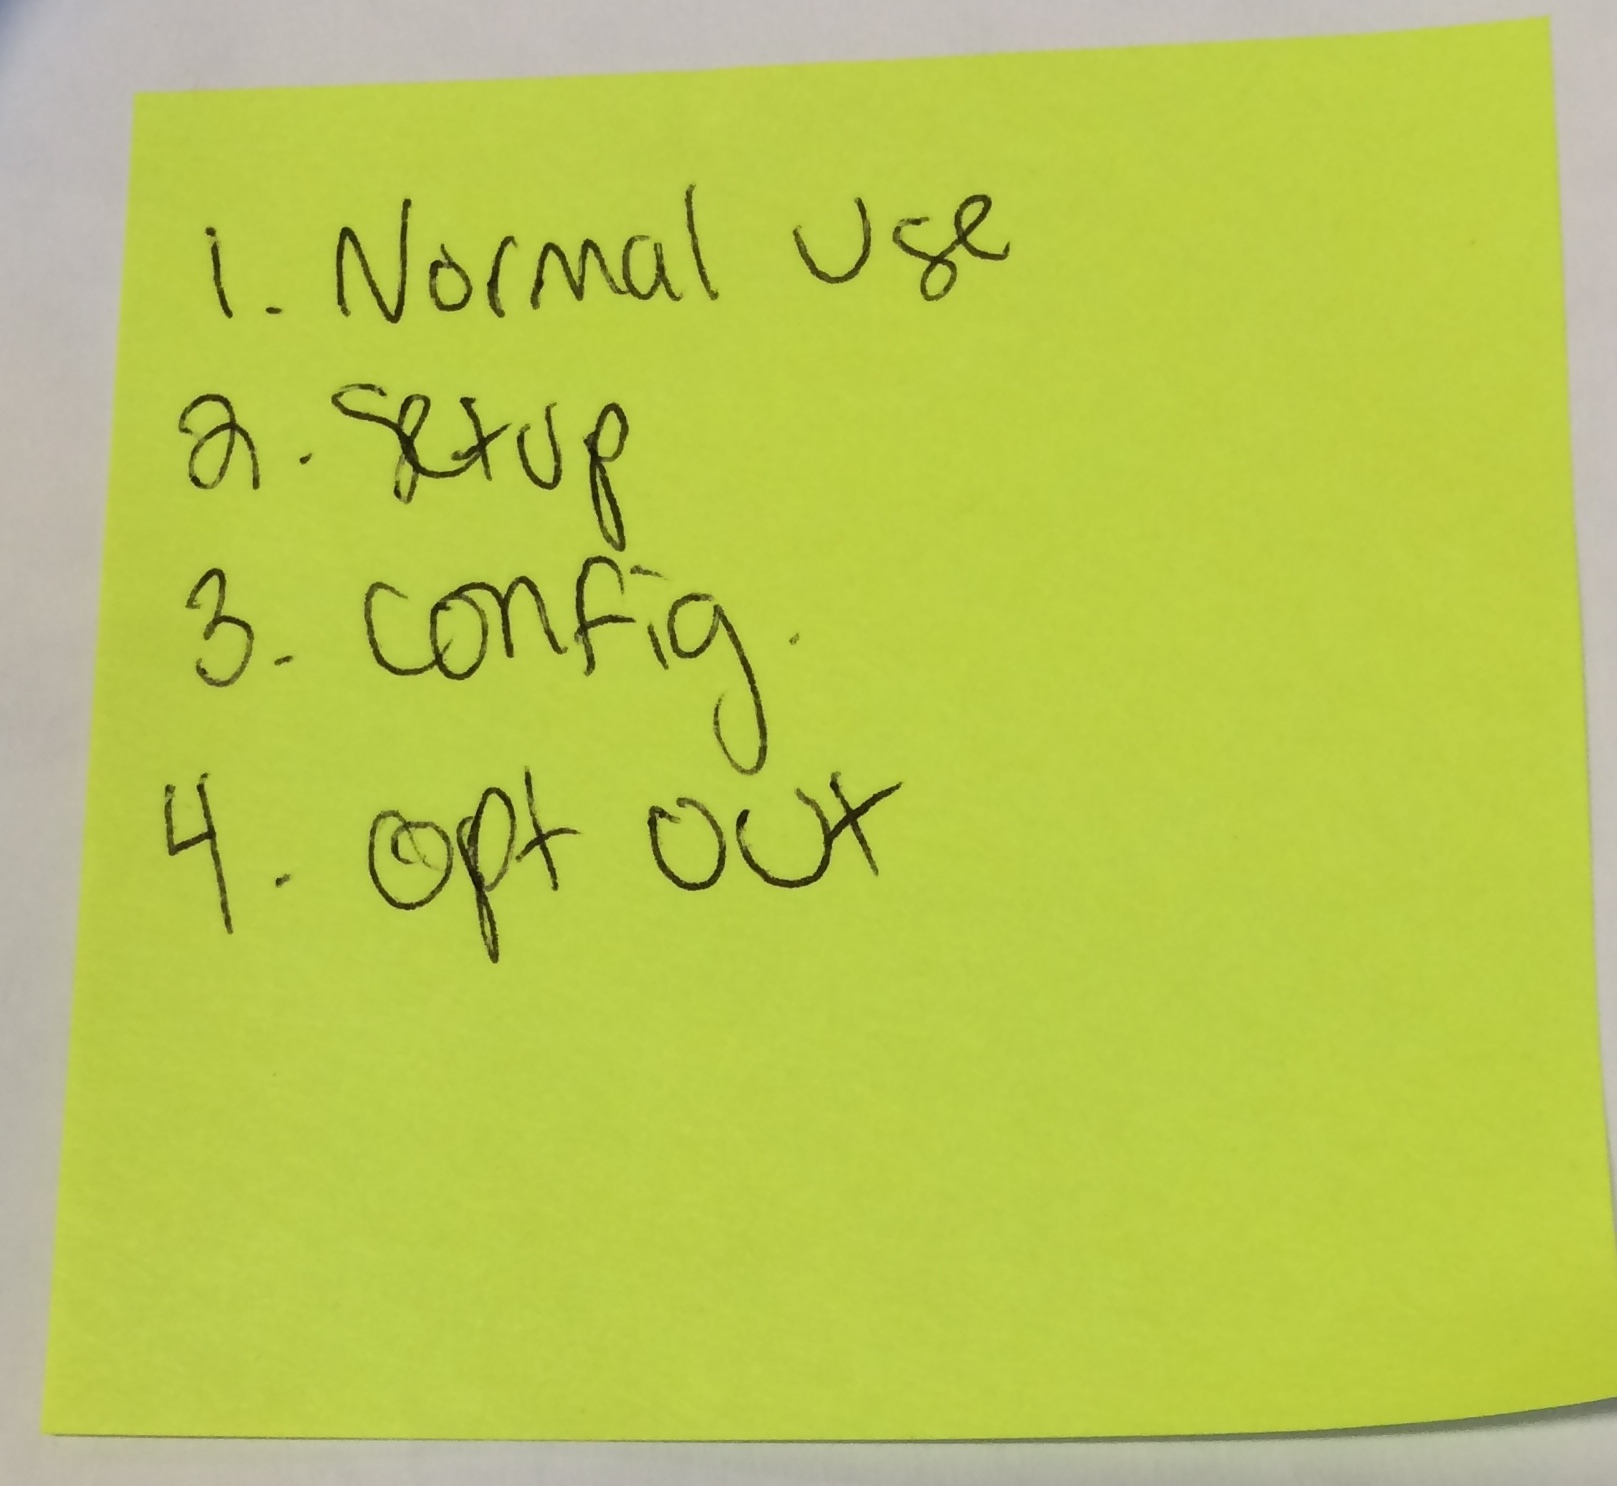 1. Normal Use
2. Setup
3. Config.
4. Opt out